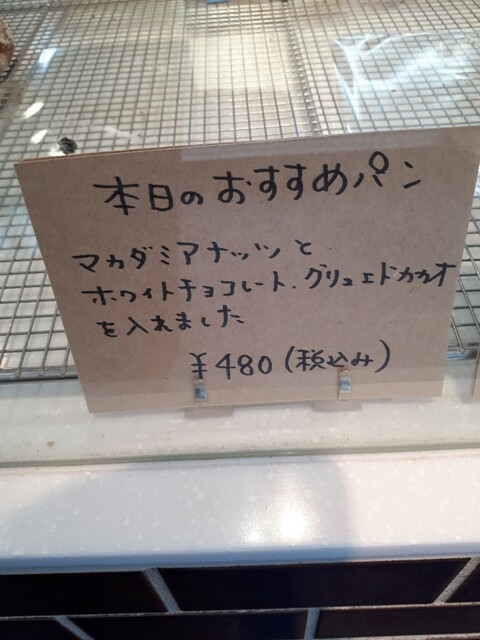 本日のおすすめパン
マカダミアナッツと
ホワイトチョコレート、グリュエドカカオ
を入れました
¥480(税込み)